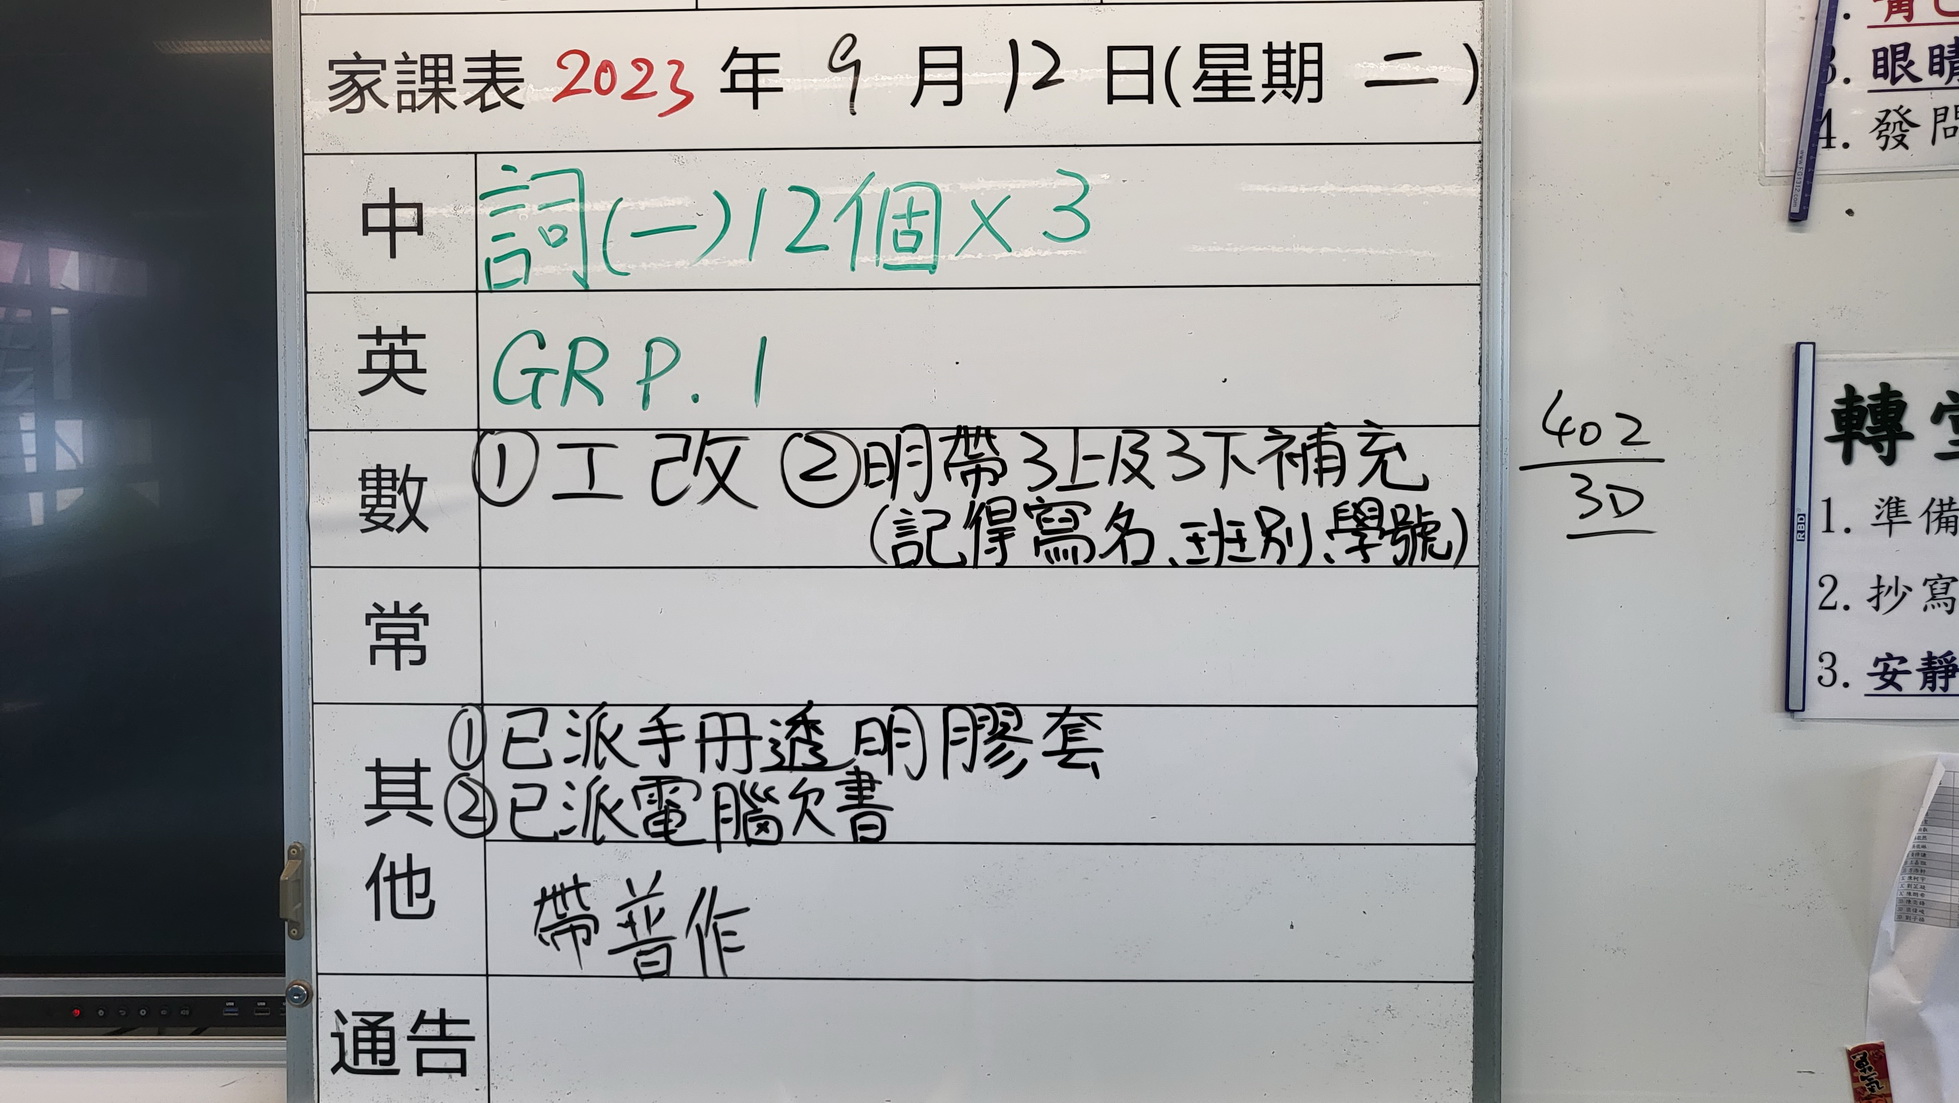 家課表 2023 年 9 月 12 日(星期 二)
中 詞(一)12個×3
英 GR P. 1
數 ①工改 ②明帶3上及3下補充
(記得寫名、班別、學號)
常
其他 ①已派手冊透明膠套
②已派電腦欠書
帶普作
通告
402
3D
3. 眼睛
4. 發問
轉堂
1. 準備
2. 抄寫
3. 安靜